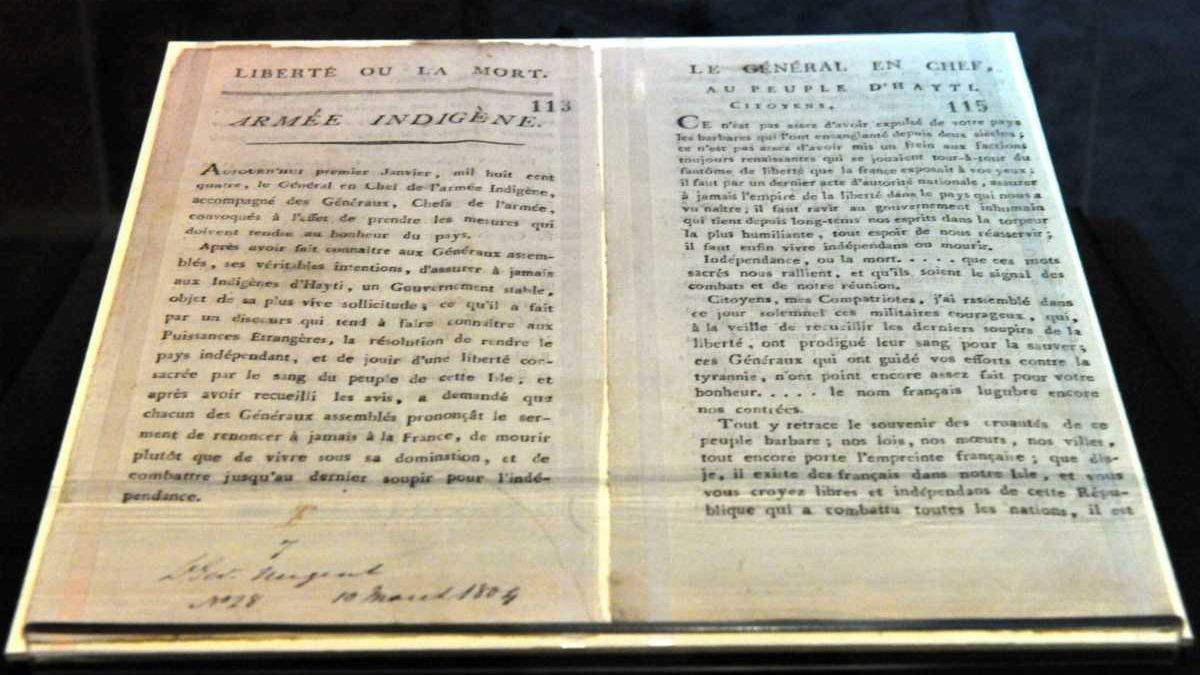 LIBERTÉ OU LA MORT.
113
ARMÉE INDIGÈNE.
AUJOURD'HUI premier Janvier, mil huit cent
quatre, le Général en Chef de l'armée Indigène,
accompagné des Généraux, Chefs de l'armée,
convoqués à l'effet de prendre les mesures qui
doivent tendre au bonheur du pays.
Après avoir fait connaître aux Généraux assem-
blés, ses véritables intentions, d'assurer à jamais
aux Indigènes d'Hayti, un Gouvernement stable,
objet de sa plus vive sollicitude; ce qu'il a fait
par un discours qui tend à faire connaître aux
Puissances Etrangères, la résolution de rendre le
pays indépendant, et de jouir d'une liberté con-
sacrée par le sang du peuple de cette Isle; et
après avoir recueilli les avis, a demandé que
chacun des Généraux assemblés prononçât le ser-
ment de renoncer à jamais à la France, de mourir
plutôt que de vivre sous sa domination, et de
combattre jusqu'au dernier soupir pour l'indé-
pendance.
Nugent
No 28 10 March 1804
LE GÉNÉRAL EN CHEF,
AU PEUPLE D'HAYTI.
CITOYENS, 115
CE n'est pas assez d'avoir expulsé de votre pays
les barbares qui l'ont ensanglanté depuis deux siècles;
ce n'est pas assez d'avoir mis un frein aux factions
toujours renaissantes qui se jouaient tour-à-tour du
fantôme de liberté que la france exposait à vos yeux;
il faut par un dernier acte d'autorité nationale, assurer
à jamais l'empire de la liberté dans le pays qui nous a
vu naître; il faut ravir au gouvernement inhumain
qui tient depuis long-tems nos esprits dans la torpeur
la plus humiliante, tout espoir de nous réasservir;
il faut enfin vivre indépendans ou mourir.
Indépendance, ou la mort..... que ces mots
sacrés nous rallient, et qu'ils soient le signal des
combats et de notre réunion.
Citoyens, mes Compatriotes, j'ai rassemblé dans
ce jour solemnel ces militaires courageux, qui,
à la veille de recueillir les derniers soupirs de la
liberté, ont prodigué leur sang pour la sauver;
ces Généraux qui ont guidé vos efforts contre la
tyrannie, n'ont point encore assez fait pour votre
bonheur..... le nom français lugubre encore
nos contrées.
Tout y retrace le souvenir des cruautés de ce
peuple barbare; nos lois, nos mœurs, nos villes,
tout encore porte l'empreinte française; que dis-
je, il existe des français dans notre Isle, et vous
vous croyez libres et indépendans de cette Répu-
blique qui a combattu toutes les nations, il est